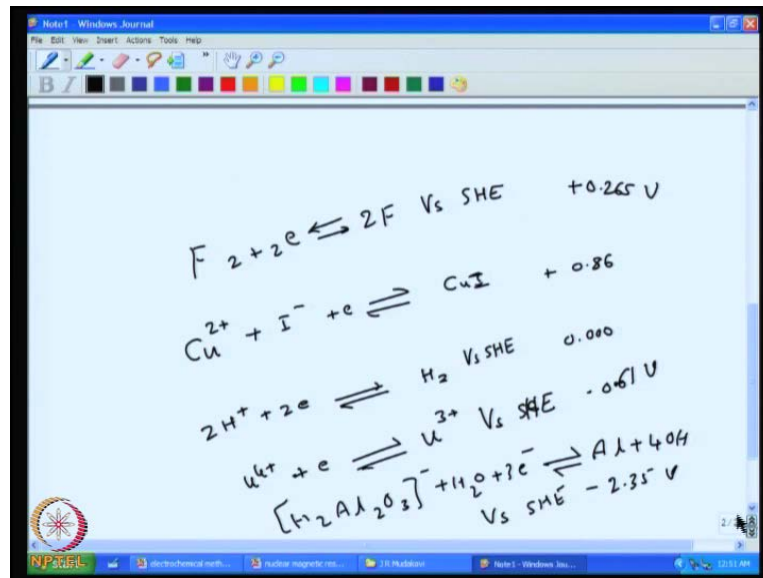 Note1 - Windows Journal
File Edit View Insert Actions Tools Help
B I
F2 + 2e ⇌ 2F Vs SHE +0.265 V
Cu2+ + I- + e ⇌ CuI + 0.86
2H+ + 2e ⇌ H2 Vs SHE 0.000
U4+ + e ⇌ U3+ Vs SHE - 0.61 V
[H2Al2O3]- + H2O + 3e- ⇌ Al + 4OH
Vs SHE - 2.35 V
NPTEL
electrochemical meth...
nuclear magnetic res...
J R Mudakavi
Note1 - Windows Jou...
12:51 AM